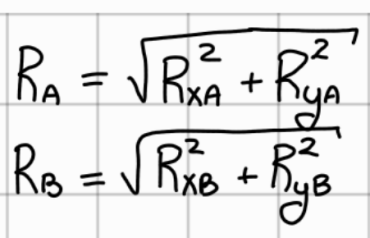 R_A = √(R_xA² + R_yA²)
R_B = √(R_xB² + R_yB²)